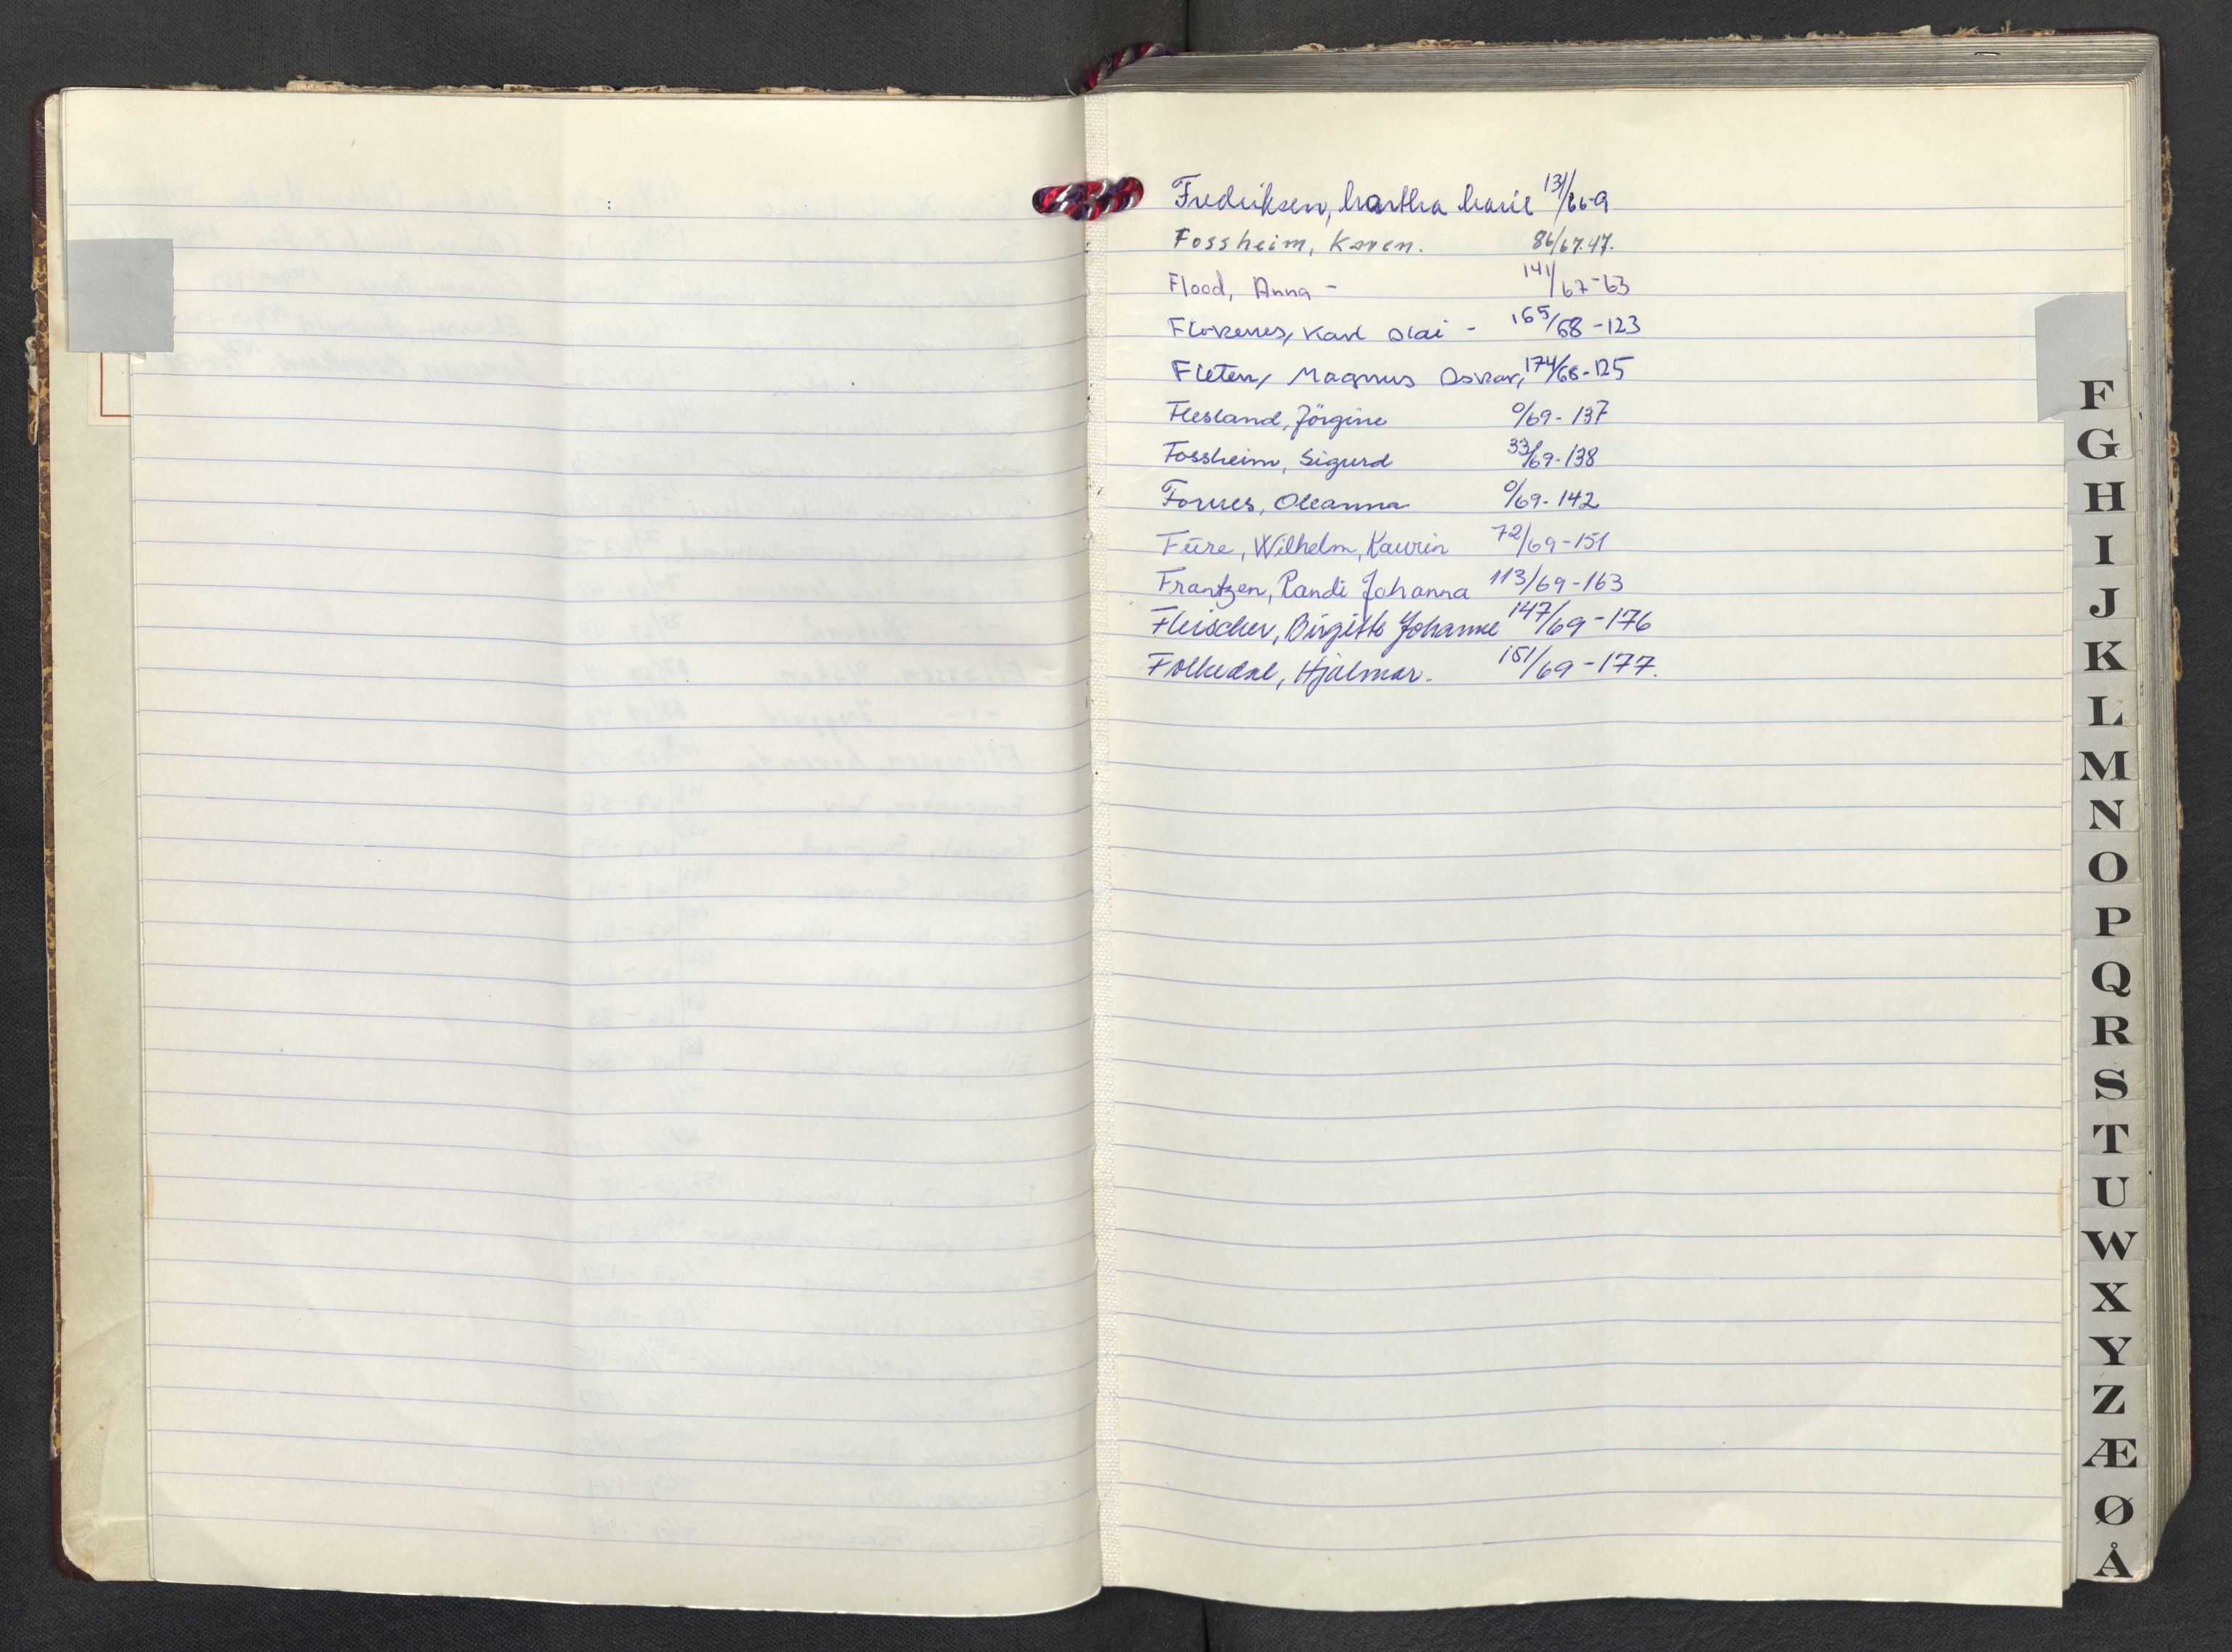 Fredriksen, Martha Marie 131/66-9
Fossheim, Karen. 86/67.47.
Flood, Anna - 141/67-63
Flokenes, Karl Olai - 165/68-123
Fleten, Magnus Oskar, 174/68-125
Flesland, Jörgine 0/69-137
Fossheim, Sigurd 33/69-138
Fornes, Oleanna 0/69-142
Fure, Wilhelm, Kaurin 72/69-151
Frantzen, Randi Johanna 113/69-163
Fleischer, Birgitte Johanne 147/69-176
Folkedal, Hjalmar. 151/69-177.
F
G
H
I
J
K
L
M
N
O
P
Q
R
S
T
U
W
X
Y
Z
Æ
Ø
Å